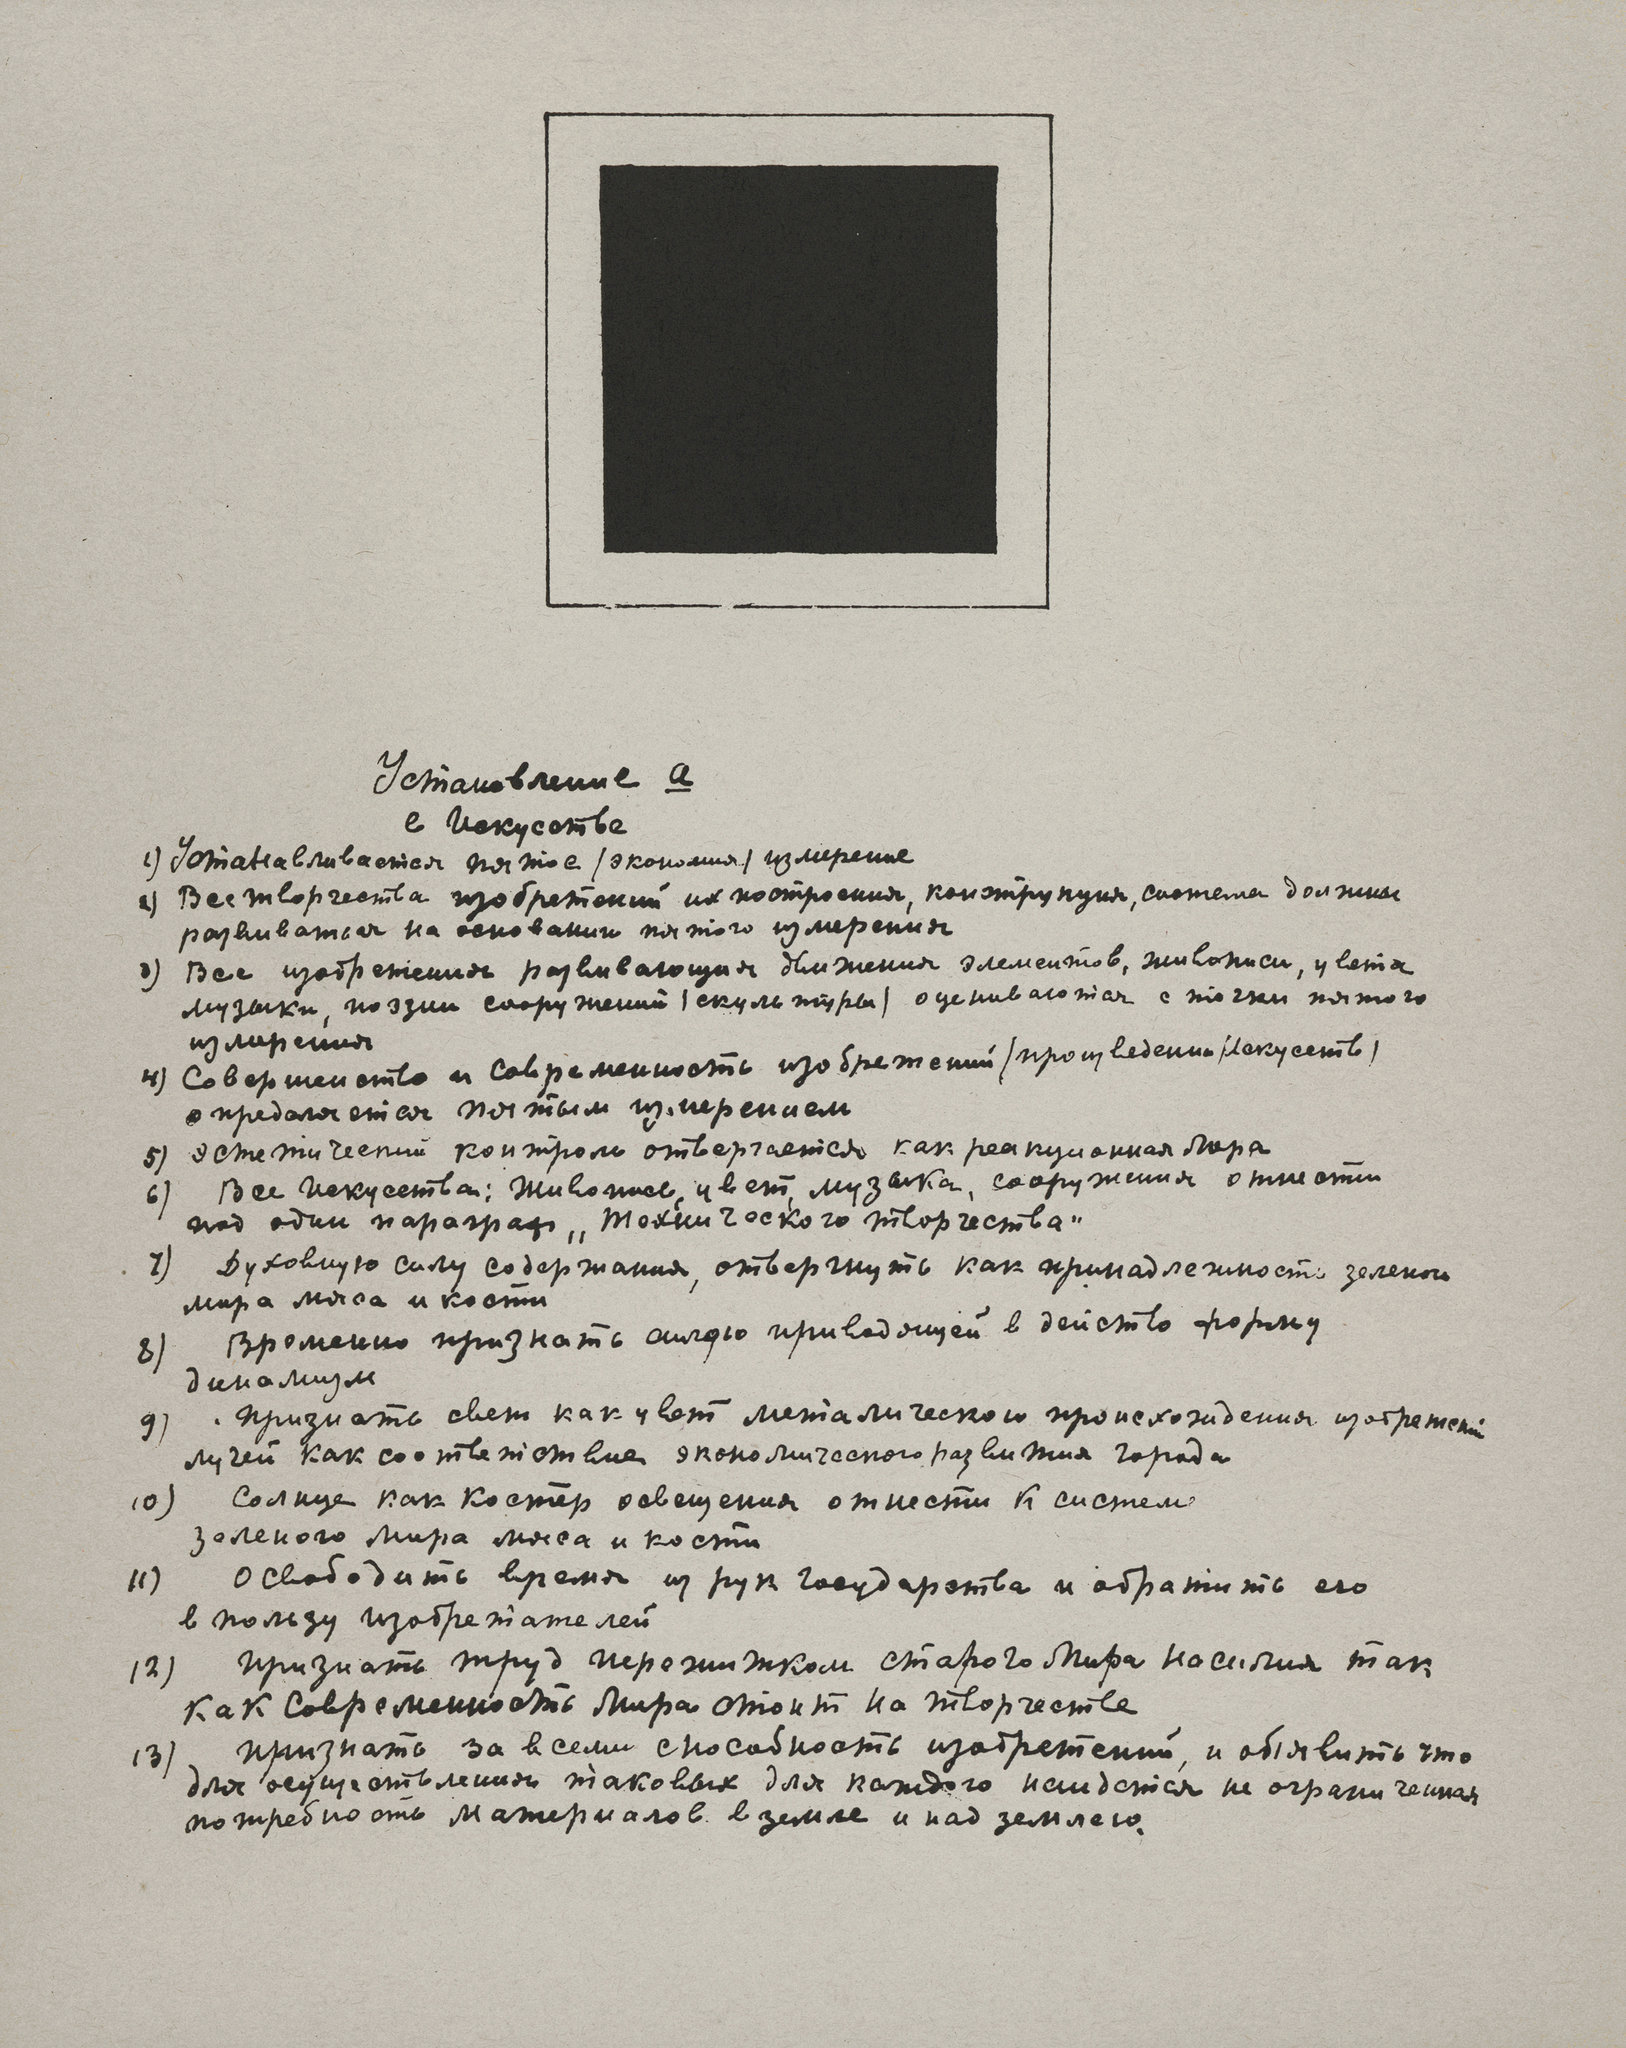 Установление а
в Искусстве
1) Устанавливается пятое (экономия) измерение
2) Все творчества изобретений их построения, конструкция, система должны
развиваться на основании пятого измерения
3) Все изобретения развивающия движения элементов, живописи, цвета
музыки, поэзии сооружений (скульптуры) оцениваются с точки пятого
измерения
4) Совершенство и современность изобретений (произведений Искусств)
определяется пятым измерением
5) Эстетический контроль отвергается как реакционная мера
6) Все Искусства: живопись, цвет, музыка, сооружения отнести
под один параграф „технического творчества"
7) Духовную силу содержания, отвергнуть как принадлежность зеленого
мира мяса и кости
8) Временно признать силою приводящей в действо форму
динамизм
9) признать свет как цвет металического происхождения изобретений
лучей как соответствие экономического развития города
10) Солнце как костер освещения отнести к системе
зеленого мира мяса и кости
11) Освободить время из рук государства и обратить его
в пользу изобретателей
12) признать труд пережитком старого мира насилия так
как современность мира стоит на творчестве
13) признать за всеми способность изобретений, и обявить что
для осуществления таковых для каждого найдется не ограниченная
потребность материалов в земле и над землею.